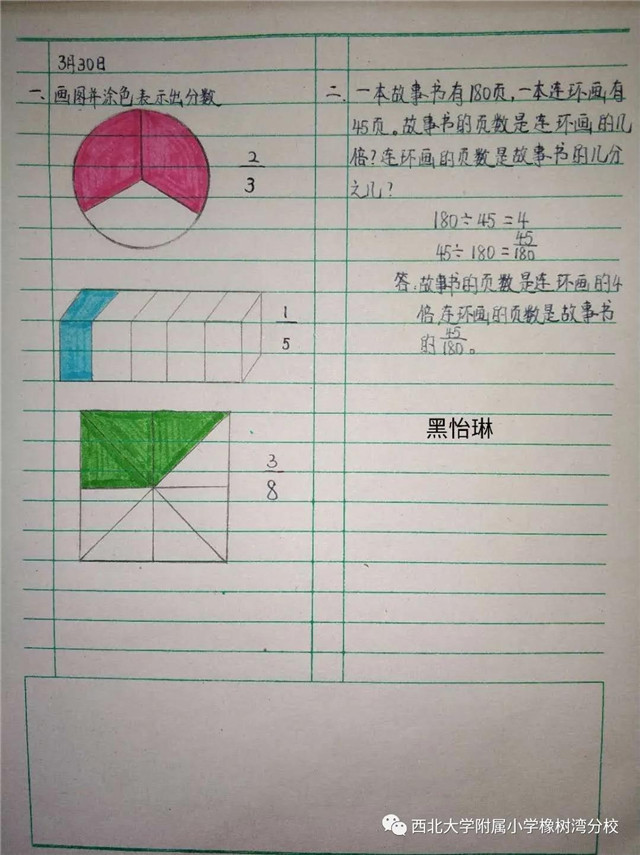 3月30日
一、画图并涂色表示出分数
2/3
1/5
3/8
二、一本故事书有180页,一本连环画有
45页。故事书的页数是连环画的几
倍?连环画的页数是故事书的几分
之几?
180÷45=4
45÷180=45/180
答:故事书的页数是连环画的4
倍连环画的页数是故事书
的45/180。
黑怡琳
西北大学附属小学橡树湾分校